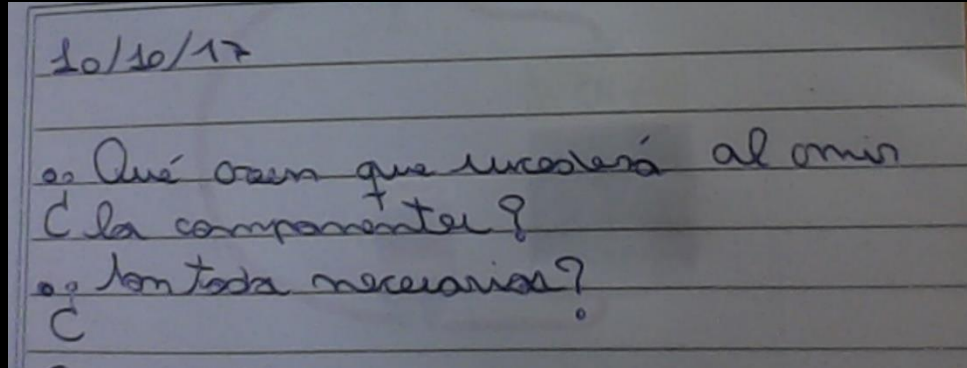 10/10/17
¿Qué creen que sucederá al omir
los componentes?
¿Son todos necesarios?